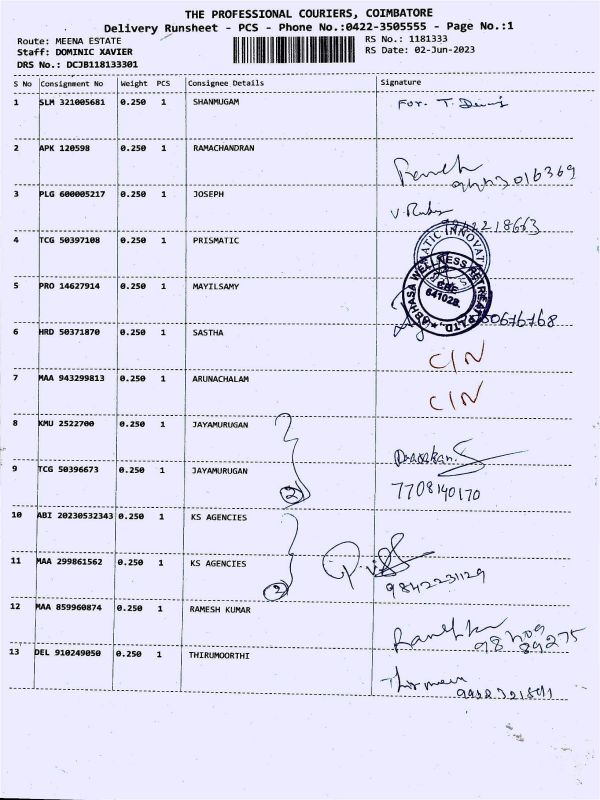 THE PROFESSIONAL COURIERS, COIMBATORE
Delivery Runsheet - PCS - Phone No.:0422-3505555 - Page No.:1
Route: MEENA ESTATE
RS No.: 1181333
Staff: DOMINIC XAVIER
RS Date: 02-Jun-2023
DRS No.: DCJB118133301
S No Consignment No Weight PCS Consignee Details Signature
1 SLM 321005681 0.250 1 SHANMUGAM For. T.
2 APK 120598 0.250 1 RAMACHANDRAN
3 PLG 600005217 0.250 1 JOSEPH
4 TCG 50397108 0.250 1 PRISMATIC
5 PRO 14627914 0.250 1 MAYILSAMY
ABHASA WELLNESS RETREAT P LTD.
CBE
641028.
6 HRD 50371870 0.250 1 SASTHA
C/N
7 MAA 943299813 0.250 1 ARUNACHALAM
C/N
8 KMU 2522700 0.250 1 JAYAMURUGAN
9 TCG 50396673 0.250 1 JAYAMURUGAN
2
7708140170
10 ABI 20230532343 0.250 1 KS AGENCIES
11 MAA 299861562 0.250 1 KS AGENCIES
2
9842231129
12 MAA 859960874 0.250 1 RAMESH KUMAR
13 DEL 910249050 0.250 1 THIRUMOORTHI